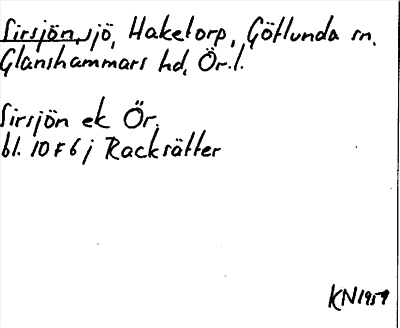 Sirsjön, sjö, Haketorp, Götlunda sn.
Glanshammars hd, Ör.l.
Sirsjön ek Ör.
bl. 10 F 6 j Racksätter
KN 1959